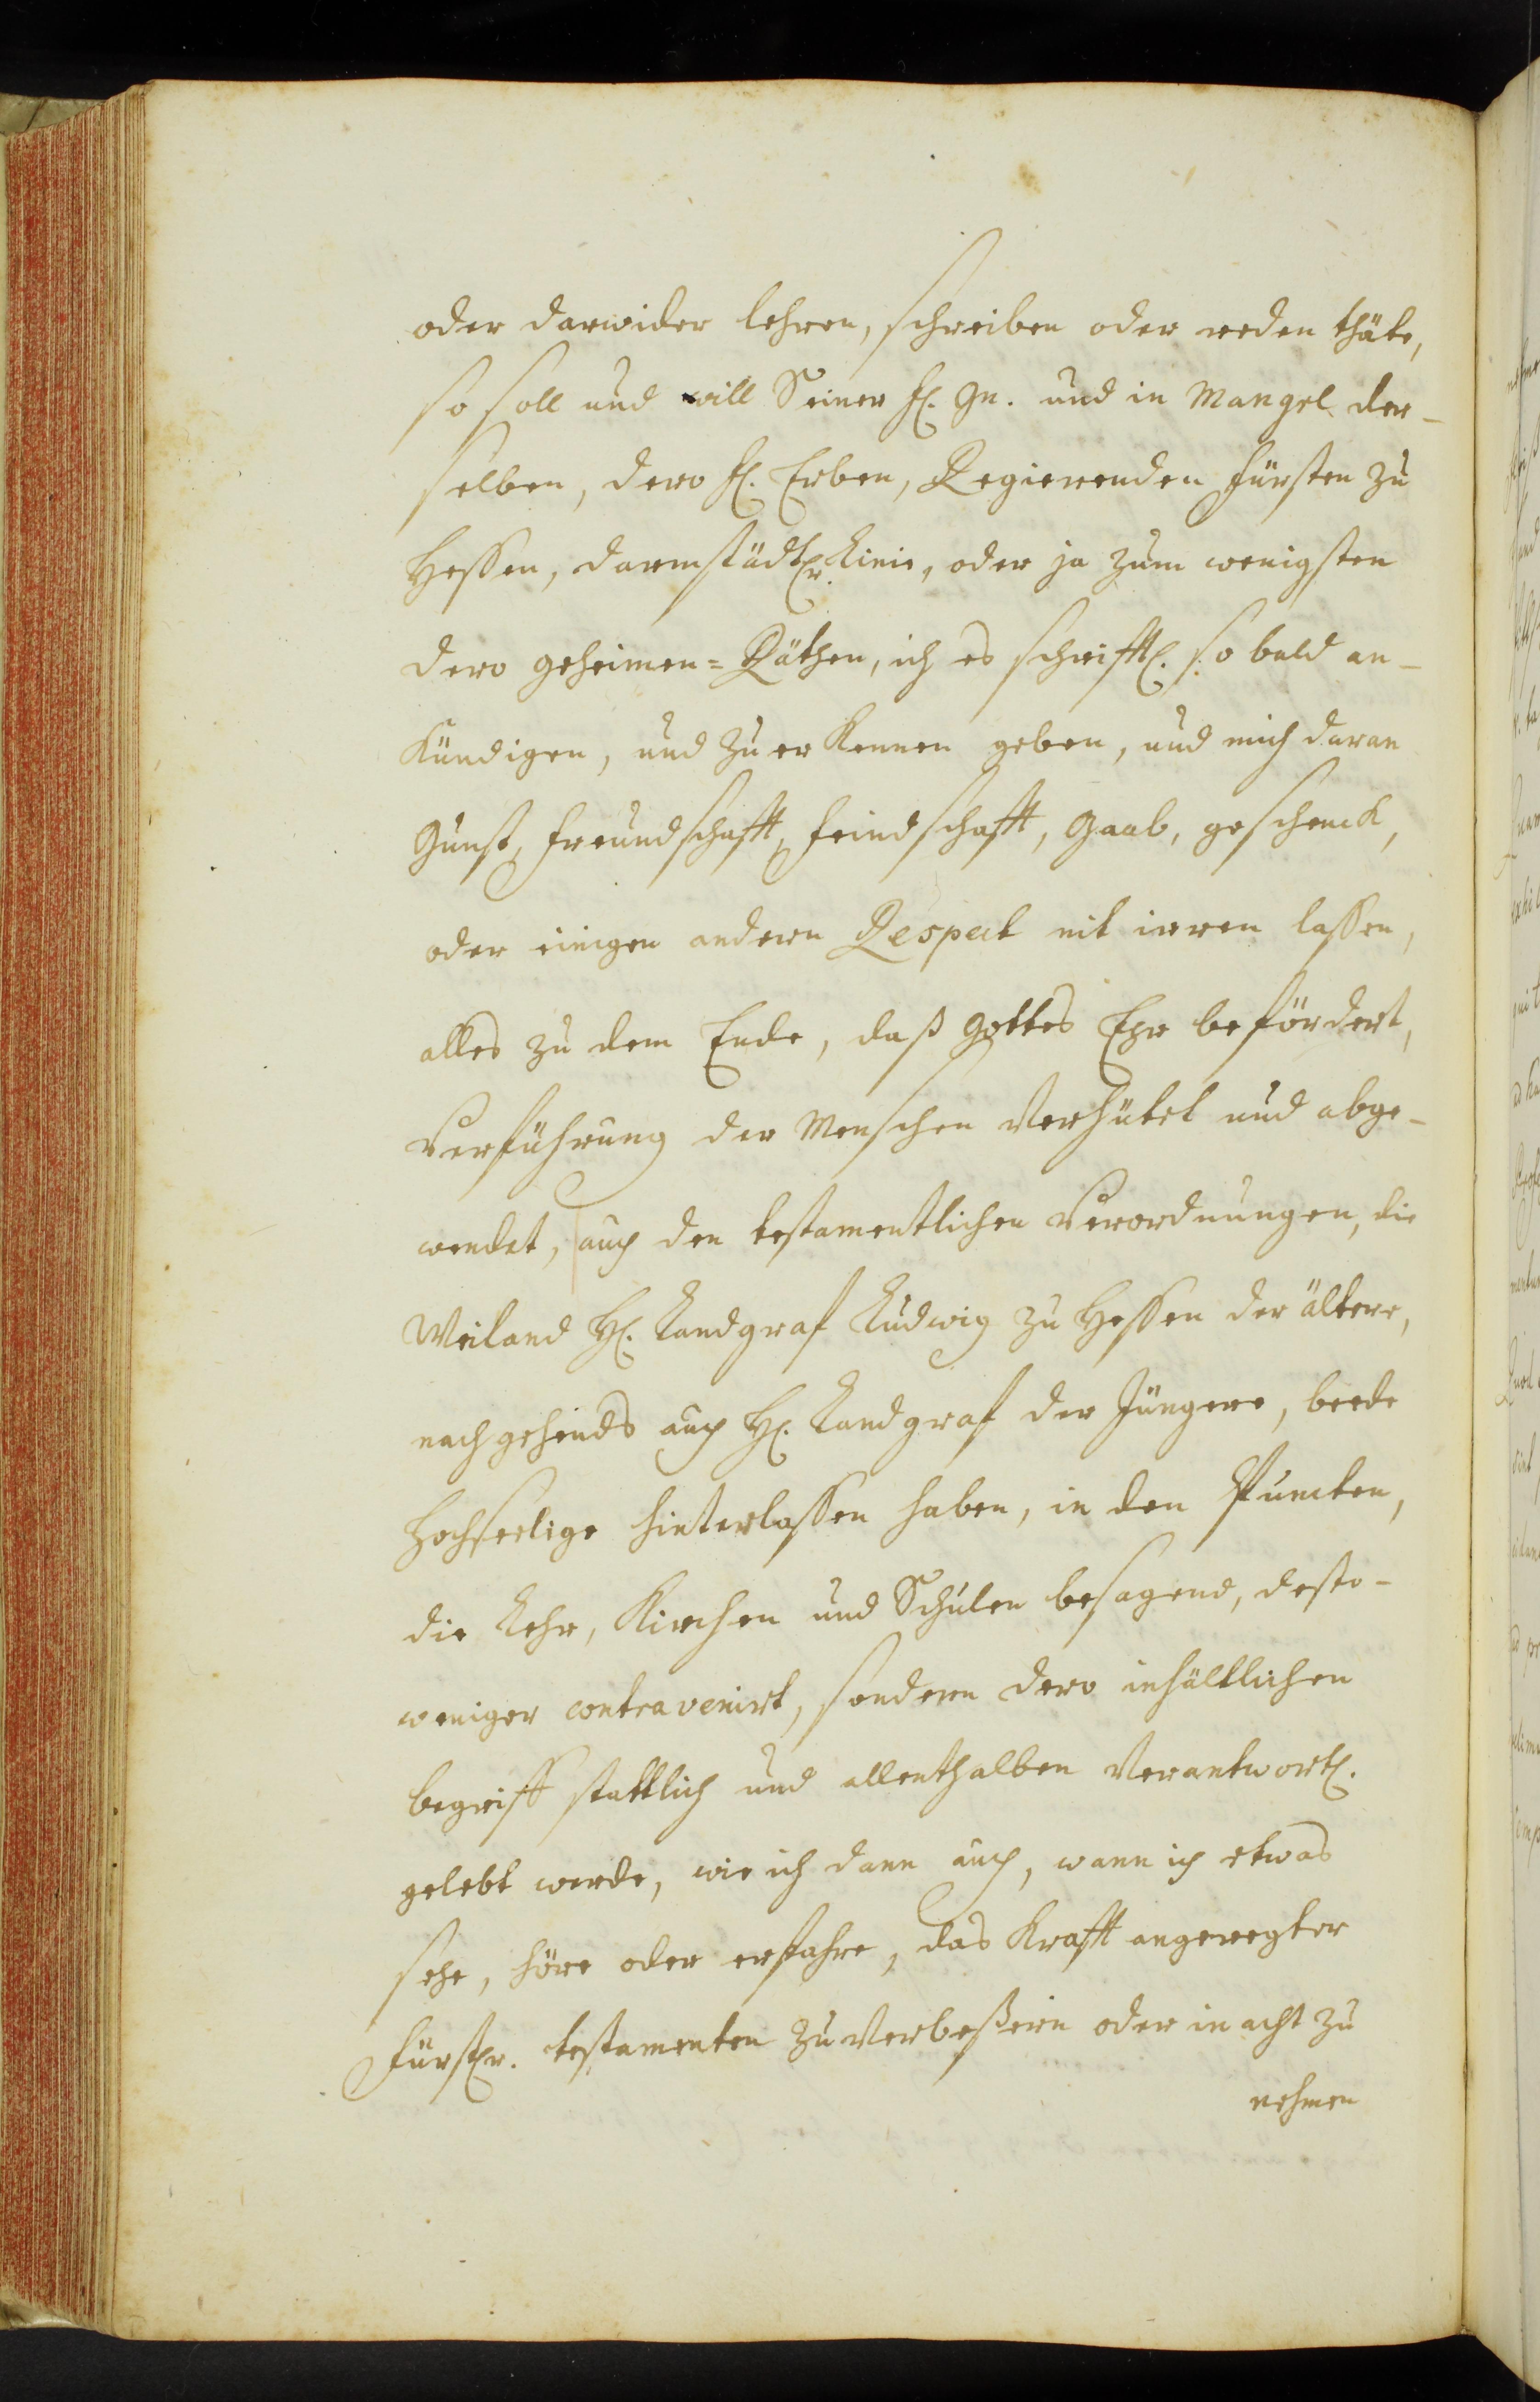 oder darwider lehren, schreiben oder reden thäte,
so soll und will Seiner fl. Gn. und in Mangel der-
selben, dero fl. Erben, Regierenden Fürsten zu
Hessen, darmstädtlr. Linie, oder ja zum wenigsten
dero geheimen=Räthen, ich es schrifftl. so bald an-
kündigen, und zu erkennen geben, und mich daran
Gunst, freundschafft, feindschafft, Gaab, geschenck,
oder einigen andern Respect nit irren lassen,
alles zu dem Ende, daß Gottes Ehr befördert,
Verführung der Menschen verhütet und abge-
wendet, auch den testamentlichen Verordnungen, die
Weiland H. Landgraf Ludwig zu Hessen der ältere,
nachgehends auch H. Landgraf der Jüngere, beede
Hochseelige hinterlassen haben, in den Puncten,
die Lehr, Kirchen und Schulen besagend, desto-
weniger contravenirt, sondern dero inhältlichen
begriff stattlich und allenthalben verantwortl.
gelebt werde, wie ich dann auch, wann ich etwas
sehe, höre oder erfahre, das Krafft angeregter
Fürstlr. testamenten zu verbeßern oder in acht zu
nehmen